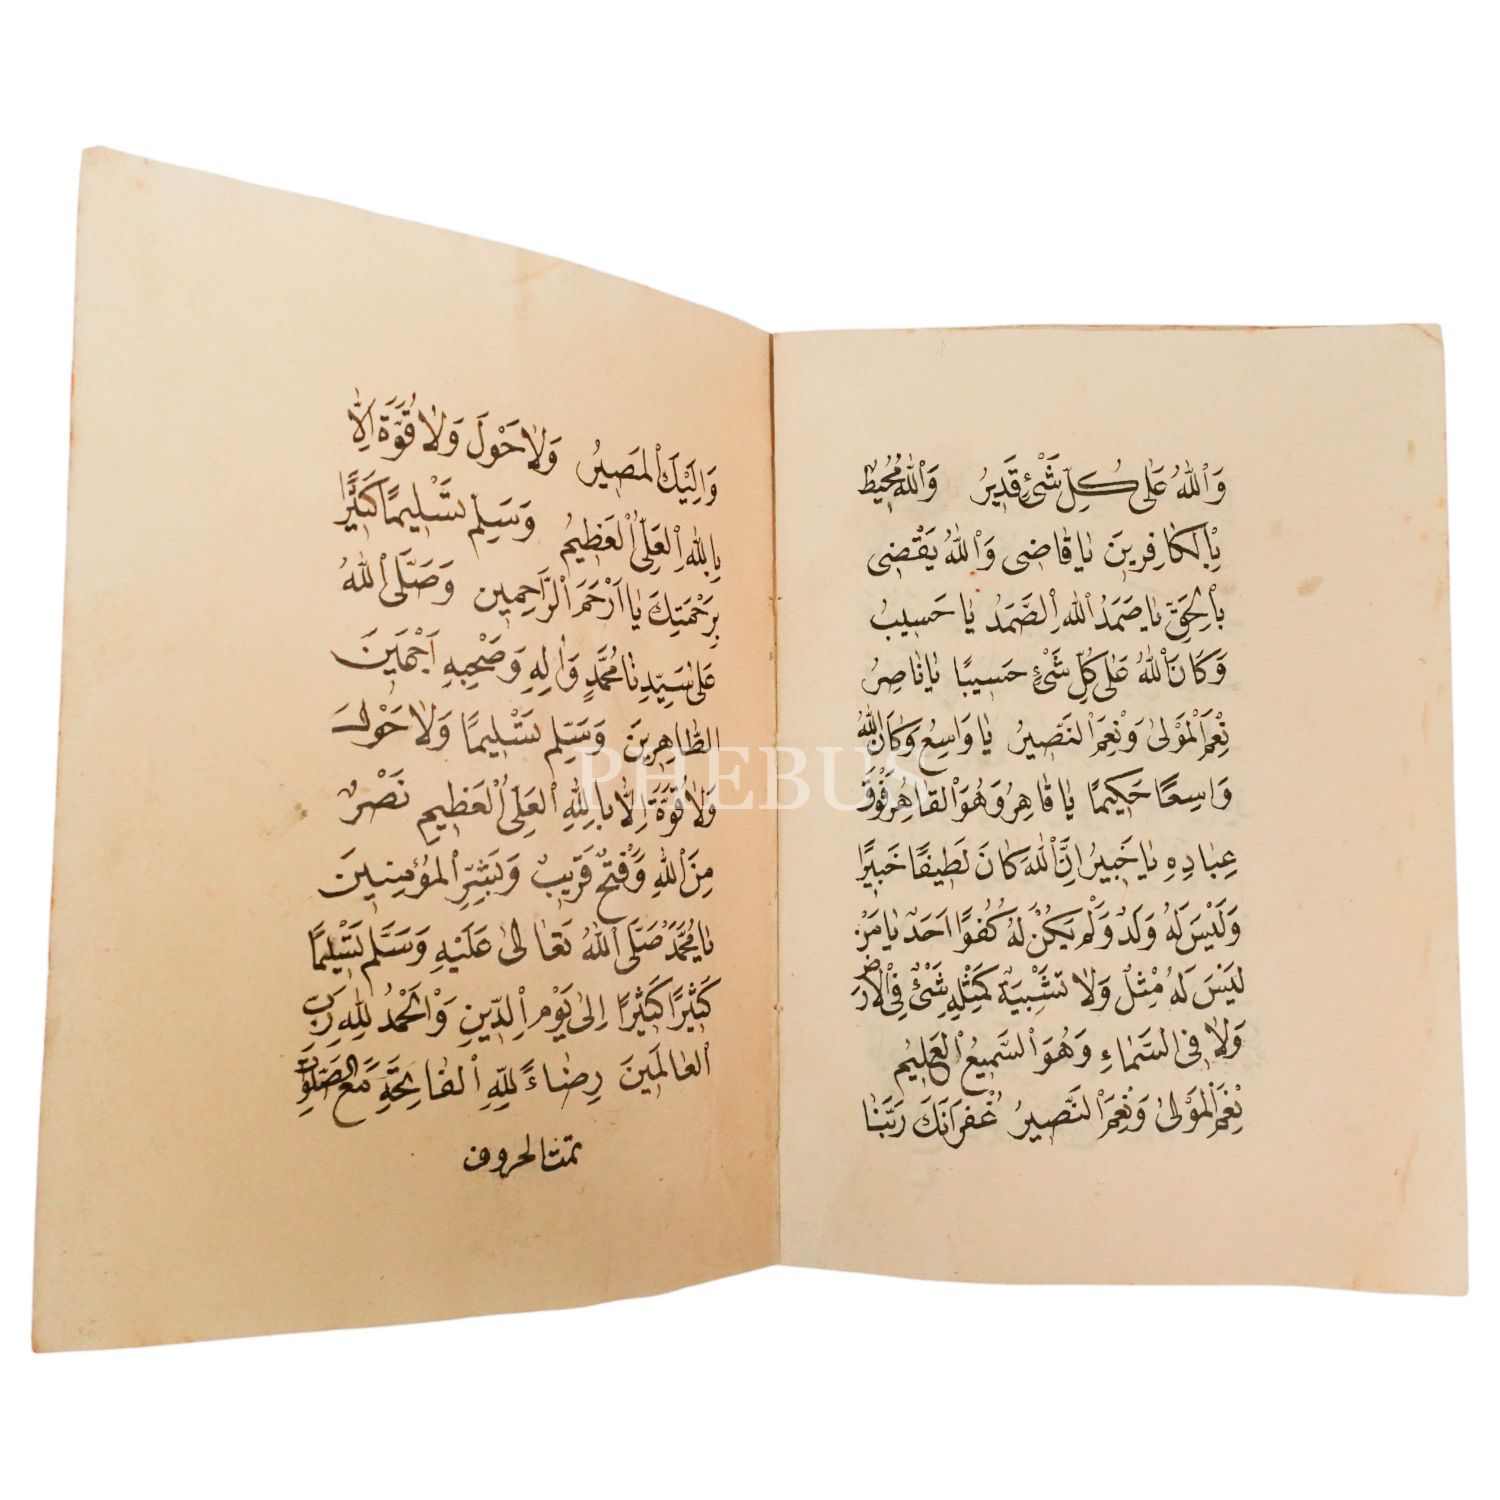 وَاللّٰهُ عَلٰى كُلِّ شَىْءٍ قَدِيرُ وَاللّٰهُ مُحِيطُ
بِالْكَافِرِينَ يَا قَاضِى وَاللّٰهُ يَقْضِى
بِالْحَقِّ يَا صَمَدُ اللّٰهِ الصَّمَدُ يَا حَسِيبُ
وَكَانَ اللّٰهُ عَلٰى كُلِّ شَىْءٍ حَسِيبًا يَا نَاصِرُ
نِعْمَ الْمَوْلٰى وَنِعْمَ النَّصِيرُ يَا وَاسِعُ وَكَانَ اللّٰهُ
وَاسِعًا حَكِيمًا يَا قَاهِرُ وَهُوَ الْقَاهِرُ فَوْقَ
عِبَادِهِ يَا خَبِيرُ اِنَّ اللّٰهَ كَانَ لَطِيفًا خَبِيرًا
وَلَيْسَ لَهُ وَلَدٌ وَلَمْ يَكُنْ لَهُ كُفُوًا اَحَدٌ يَا مَنْ
لَيْسَ لَهُ مِثْلٌ وَلَا تَشْبِيَةٌ كَمِثْلِهِ شَىْءٌ فِى الْاَرْضِ
وَلَا فِى السَّمَاءِ وَهُوَ السَّمِيعُ الْعَلِيمُ
نِعْمَ الْمَوْلٰى وَنِعْمَ النَّصِيرُ غُفْرَانَكَ رَبَّنَا
وَاِلَيْكَ الْمَصِيرُ وَلَا حَوْلَ وَلَا قُوَّةَ اِلَّا
بِاللّٰهِ الْعَلِىِّ الْعَظِيمُ وَسَلِّمْ تَسْلِيمًا كَثِيرًا
بِرَحْمَتِكَ يَا اَرْحَمَ الرَّاحِمِين وَصَلَّى اللّٰهُ
عَلٰى سَيِّدِنَا مُحَمَّدٍ وَاٰلِهِ وَصَحْبِهِ اَجْمَعِينَ
الطَّاهِرِينَ وَسَلِّمْ تَسْلِيمًا وَلَا حَوْلَ
وَلَا قُوَّةَ اِلَّا بِاللّٰهِ الْعَلِىِّ الْعَظِيمِ نَصْرٌ
مِنَ اللّٰهِ وَفَتْحٌ قَرِيبٌ وَبَشِّرِ الْمُؤْمِنِينَ
يَا مُحَمَّدُ صَلَّى اللّٰهُ تَعَالٰى عَلَيْهِ وَسَلَّمْ تَسْلِيمًا
كَثِيرًا كَثِيرًا اِلٰى يَوْمِ الدِّينِ وَالْحَمْدُ لِلّٰهِ رَبِّ
الْعَالَمِينَ رِضَاءً لِلّٰهِ الْفَاتِحَةِ مَعَ الصَّلَوٰاتِ
تمت الحروف
PHEBUS